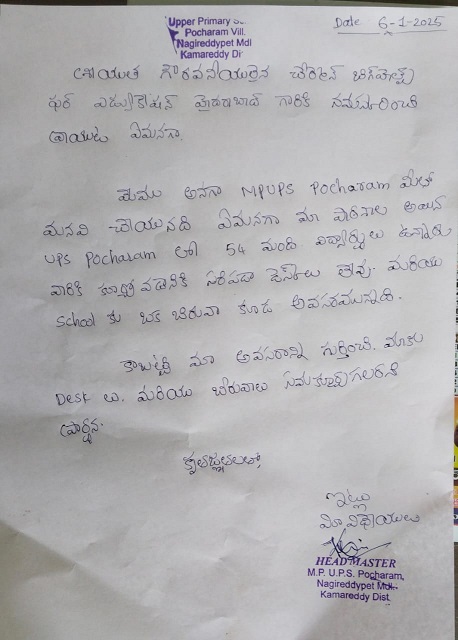 Upper Primary
Pocharam Vill.
Nagireddypet Mdl
Kamareddy Di
Date 6-1-2025
శ్రీయుత గౌరవనీయులైన చైర్మెన్ బిగ్‌హెల్ప్
ఫర్ ఎడ్యుకేషన్ హైదరాబాద్ గారికి నమస్కరించి
వ్రాయుట ఏమనగా
మేము అనగా MPUPS Pocharam మీతో
మనవి చేయునది ఏమనగా మా పాఠశాల అయిన
UPS Pocharam లో 54 మంది విద్యార్థులు ఉన్నారు
వారికి కూర్చోవడానికి సరిపడా డెస్క్‌లు లేవు. మరియు
School కు ఒక బీరువా కూడ అవసరమున్నది.
కాబట్టి మా అవసరాన్ని గుర్తించి. మాకు
Desk లు. మరియు బీరువాలు సమకూర్చగలరని
ప్రార్థన.
కృతజ్ఞతలతో,
ఇట్లు
మీ విధేయులు
HEAD MASTER
M.P. U.P.S. Pocharam,
Nagireddypet Mdl.
Kamareddy Dist.